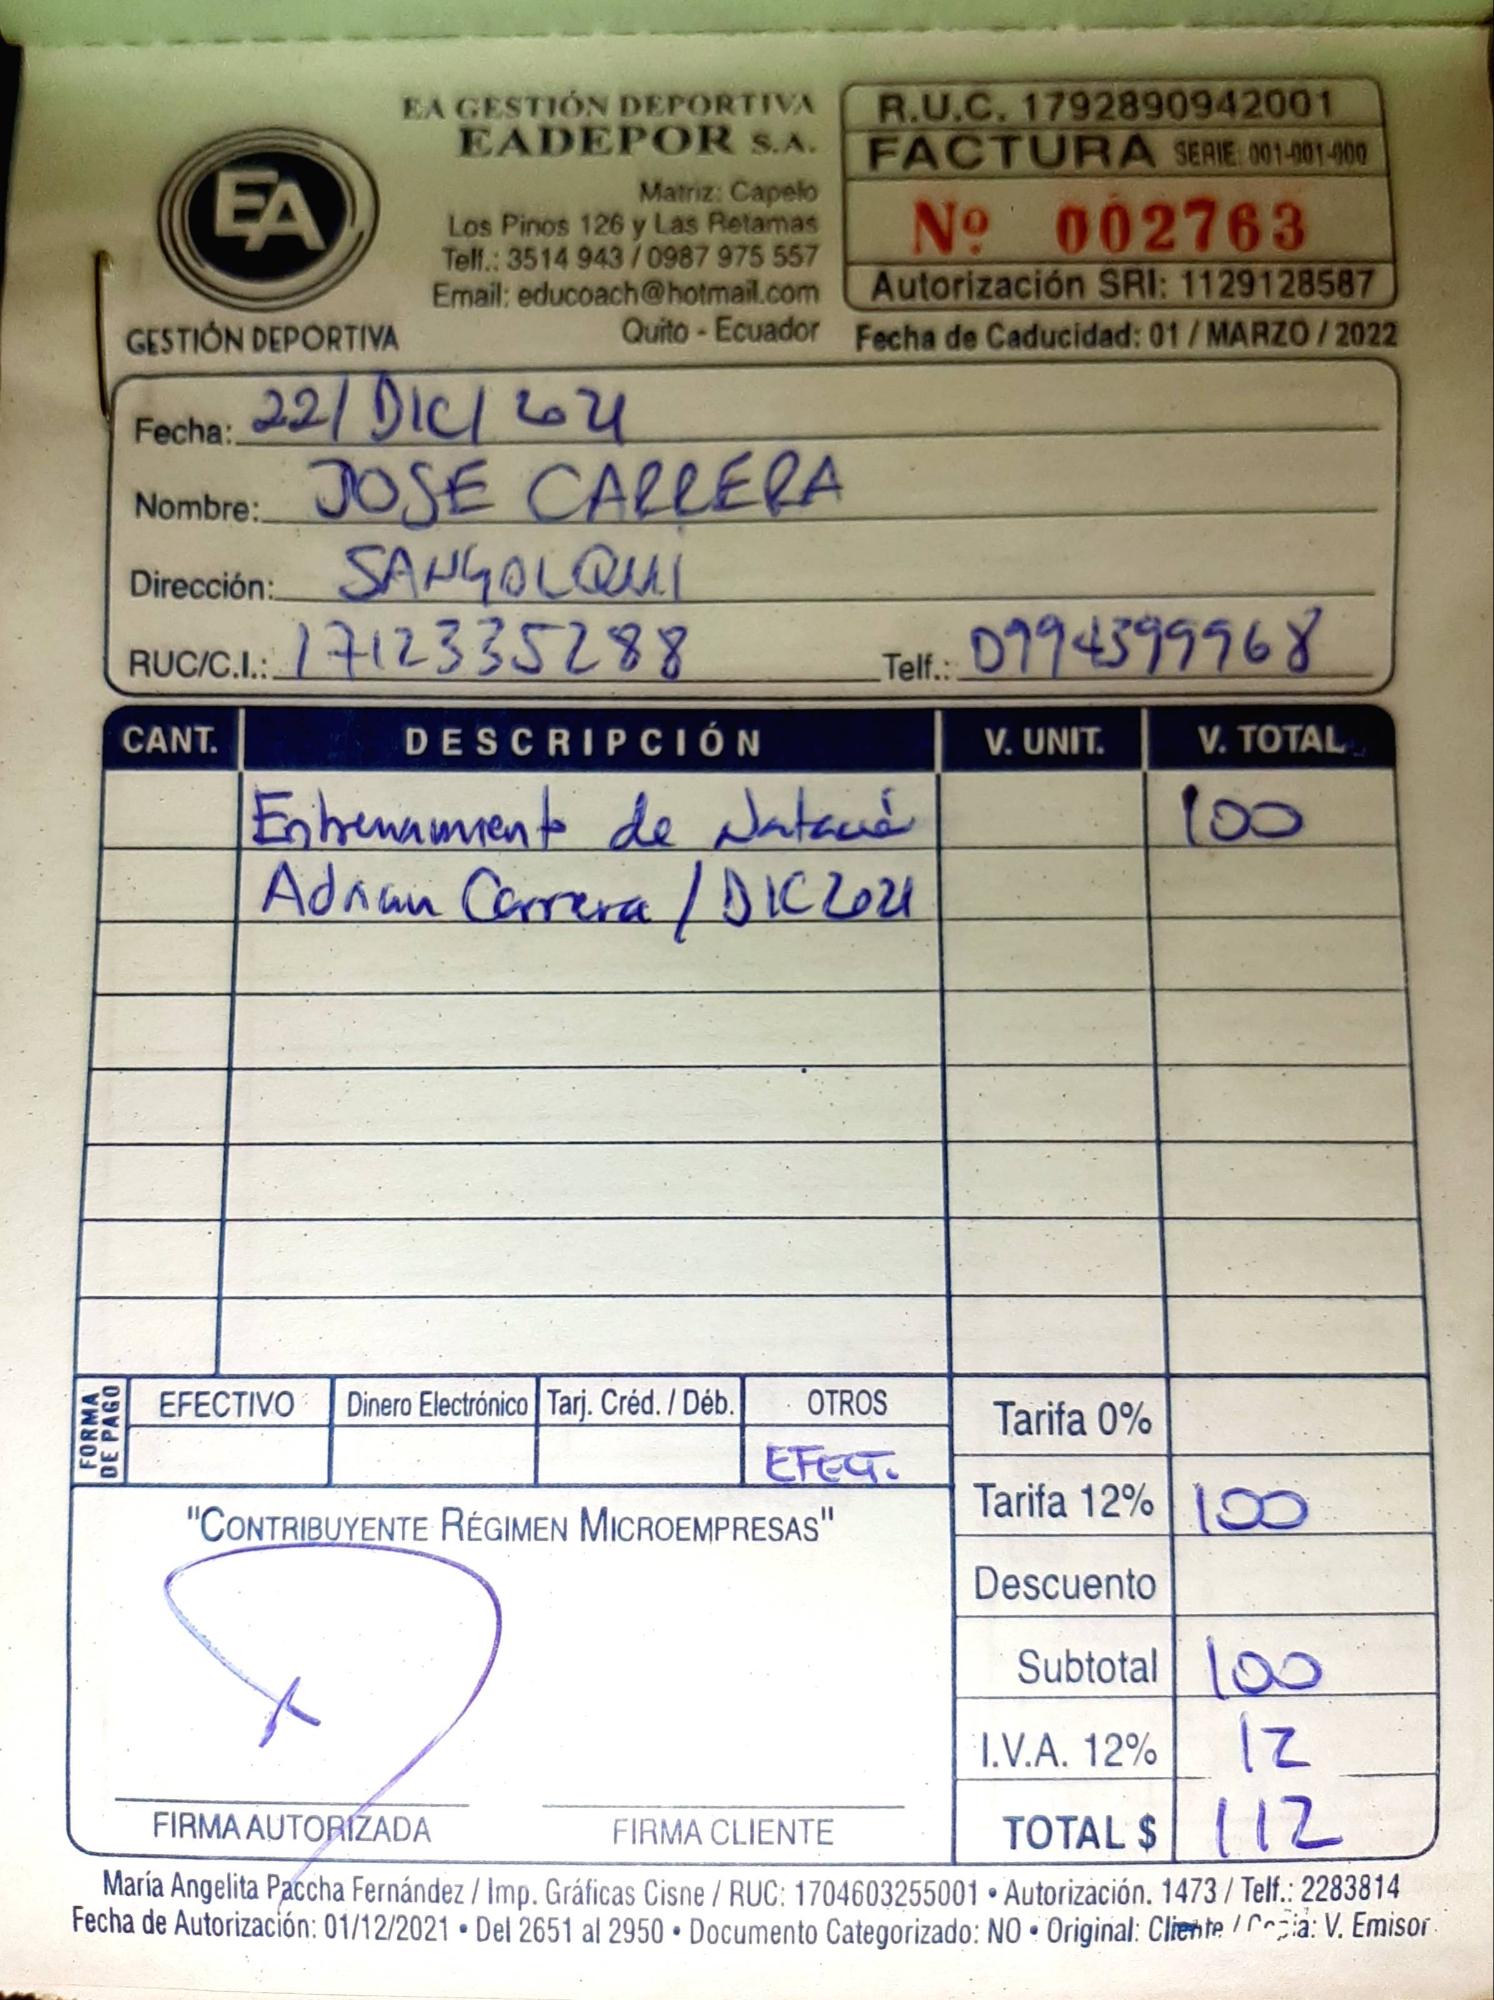 EA GESTIÓN DEPORTIVA
EADEPOR S.A.
Matriz: Capelo
Los Pinos 126 y Las Retamas
Telf.: 3514 943 / 0987 975 557
Email: educoach@hotmail.com
Quito - Ecuador
EA
GESTIÓN DEPORTIVA
R.U.C. 1792890942001
FACTURA SERIE: 001-001-000
Nº 002763
Autorización SRI: 1129128587
Fecha de Caducidad: 01 / MARZO / 2022
Fecha: 22/DIC/2021
Nombre: JOSE CARRERA
Dirección: SANGOLQUI
RUC/C.I.: 1712335288 Telf.: 0994399968
CANT. DESCRIPCIÓN V. UNIT. V. TOTAL
Entrenamiento de Natación 100
Adrian Carrera / DIC 2021
FORMA DE PAGO
EFECTIVO Dinero Electrónico Tarj. Créd. / Déb. OTROS
EFECT.
Tarifa 0%
Tarifa 12% 100
Descuento
Subtotal 100
I.V.A. 12% 12
TOTAL $ 112
"CONTRIBUYENTE RÉGIMEN MICROEMPRESAS"
FIRMA AUTORIZADA FIRMA CLIENTE
María Angelita Paccha Fernández / Imp. Gráficas Cisne / RUC: 1704603255001 • Autorización. 1473 / Telf.: 2283814
Fecha de Autorización: 01/12/2021 • Del 2651 al 2950 • Documento Categorizado: NO • Original: Cliente / Copia: V. Emisor